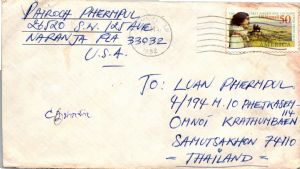 PAIROCH PHERMPUL
26520 S.W. 125 AVE
NARANJA FLA 33032
U.S.A.
50
AMERICA
TO: LUAN PHERMPUL
4/194 M.10 PHETKASEM 114
OMNOI KRATHUMBAEN
SAMUTSAKHON 74110
= THAILAND =